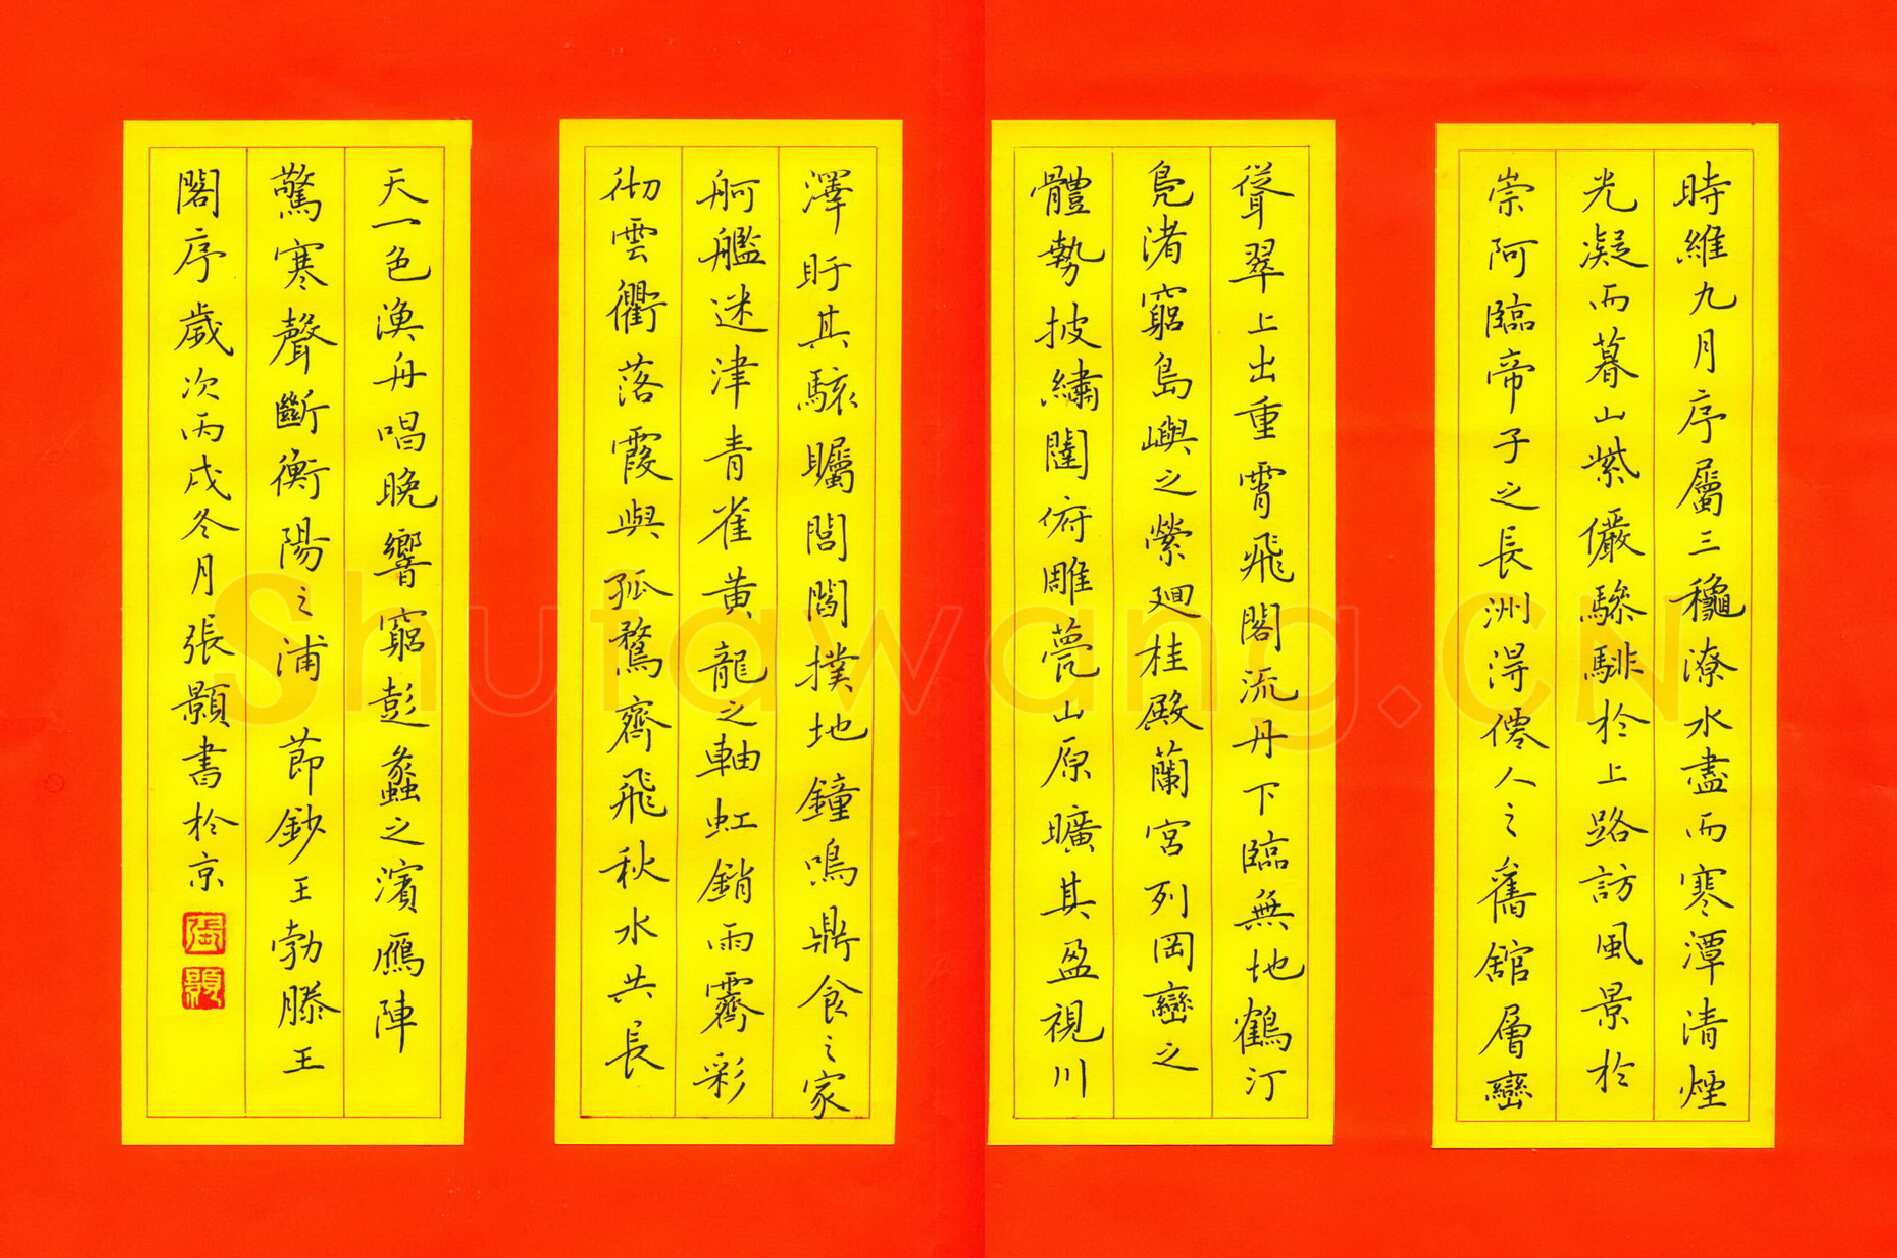 時維九月序屬三龝潦水盡而寒潭清煙
光凝而暮山紫儼驂騑於上路訪風景於
崇阿臨帝子之長洲得僊人之舊舘層巒
聳翠上出重霄飛閣流丹下臨無地鶴汀
鳧渚窮島嶼之縈廻桂殿蘭宮列岡巒之
體勢披繡闥俯雕甍山原曠其盈視川
澤盱其駭矚閭閻撲地鐘鳴鼎食之家
舸艦迷津青雀黃龍之軸虹銷雨霽彩
彻雲衢落霞與孤鶩齊飛秋水共長
天一色漁舟唱晚響窮彭蠡之濱鴈陣
驚寒聲斷衡陽之浦 節鈔王勃滕王
閣序歲次丙戌冬月張顥書於京
張
顥
Shufawang.CN